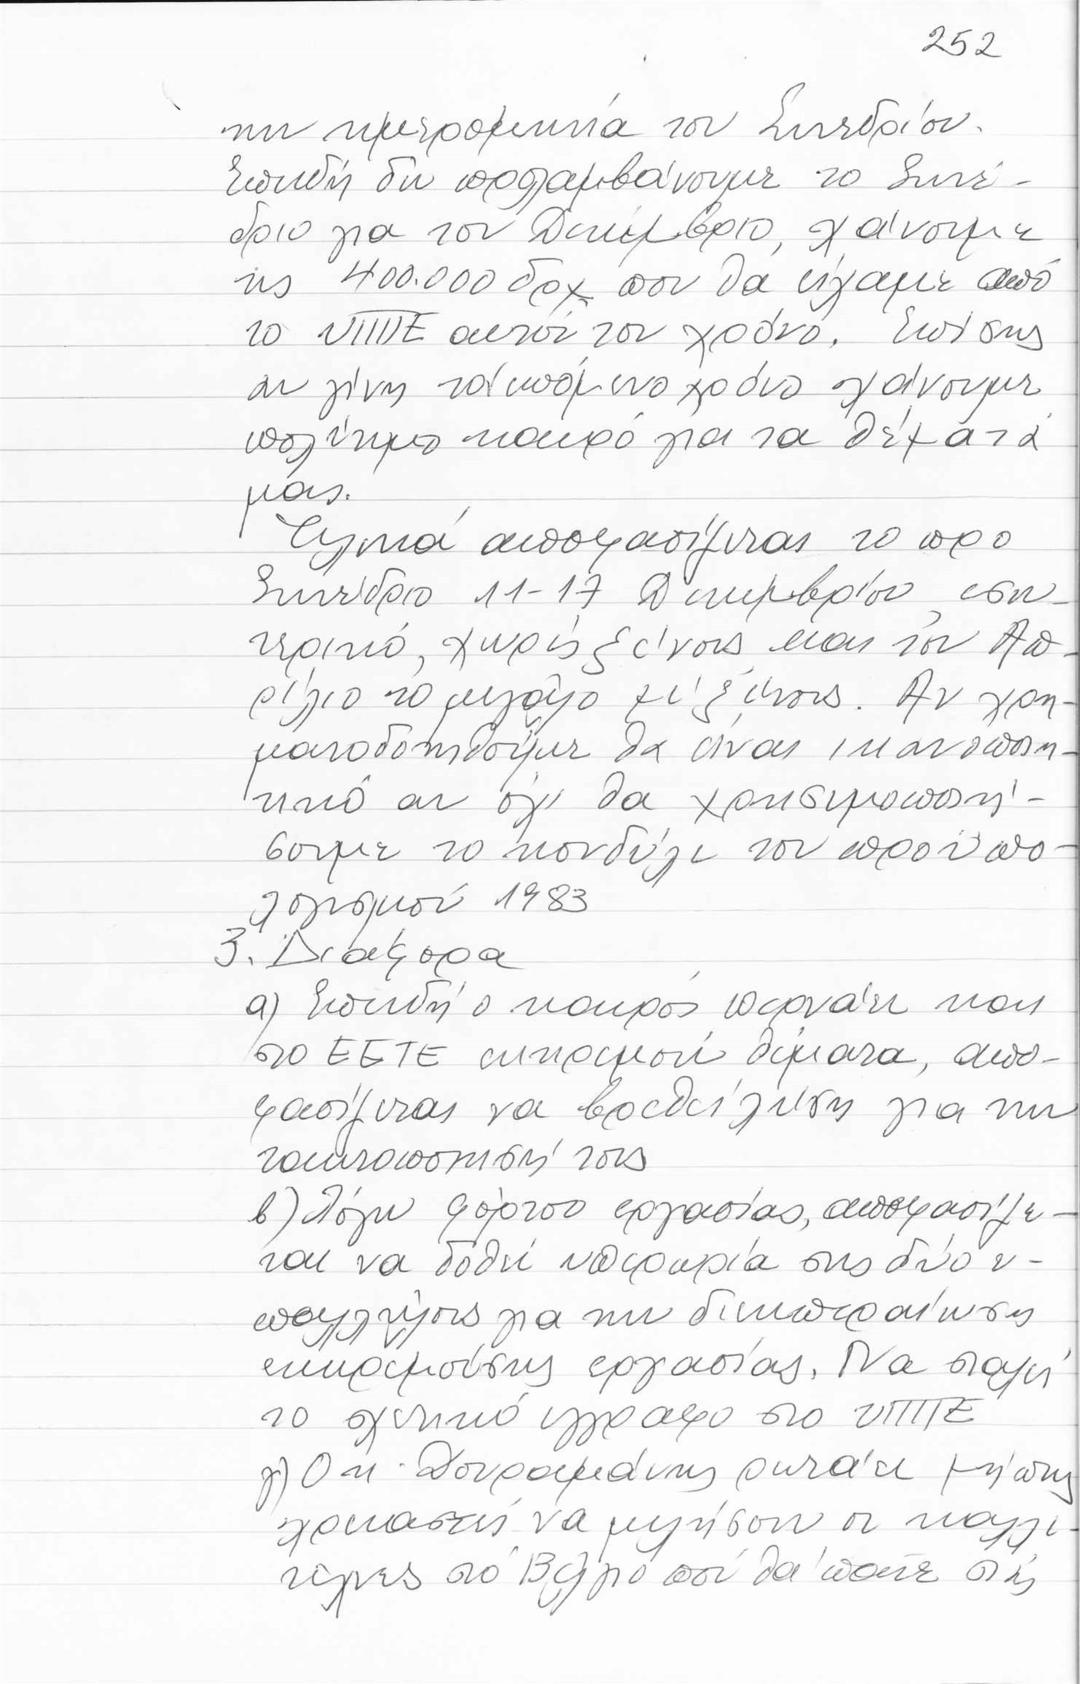 252
την ημερομηνία του Συνεδρίου.
Επειδή δεν προλαμβάνουμε το Συνέ-
δριο για τον Δεκέμβριο, χάνουμε
τις 400.000 δρχ που θα είχαμε από
το ΥΠΠΕ αυτόν τον χρόνο. Επίσης
αν γίνη τον επόμενο χρόνο χάνουμε
πολύτιμο καιρό για τα θέματά
μας.
Τελικά αποφασίζεται το προ
Συνέδριο 11-17 Δεκεμβρίου, εσω-
τερικό, χωρίς ξένους και τον Απ-
ρίλιο το μεγάλο με ξένους. Αν χρη-
ματοδοτηθούμε θα είναι ικανοποιη-
τικό αν όχι θα χρησιμοποιή-
σουμε το κονδύλι του προϋπο-
λογισμού 1983
3. Διάφορα
α) Επειδή ο καιρός περνάει και
στο ΕΕΤΕ εκκρεμούν θέματα, απο-
φασίζεται να βρεθεί λύση για την
τακτοποίησή τους
β) Λόγω φόρτου εργασίας, αποφασίζε-
ται να δοθεί υπερωρία στις δύο υ-
παλλήλους για την διεκπεραίωση
εκκρεμούσης εργασίας. Να σταλεί
το σχετικό έγγραφο στο ΥΠΠΕ
γ) Ο κ. ρωτάει μήπως
χρειαστεί να μιλήσουν οι καλλι-
τέχνες στο Βέλγιο που θα πάνε στις